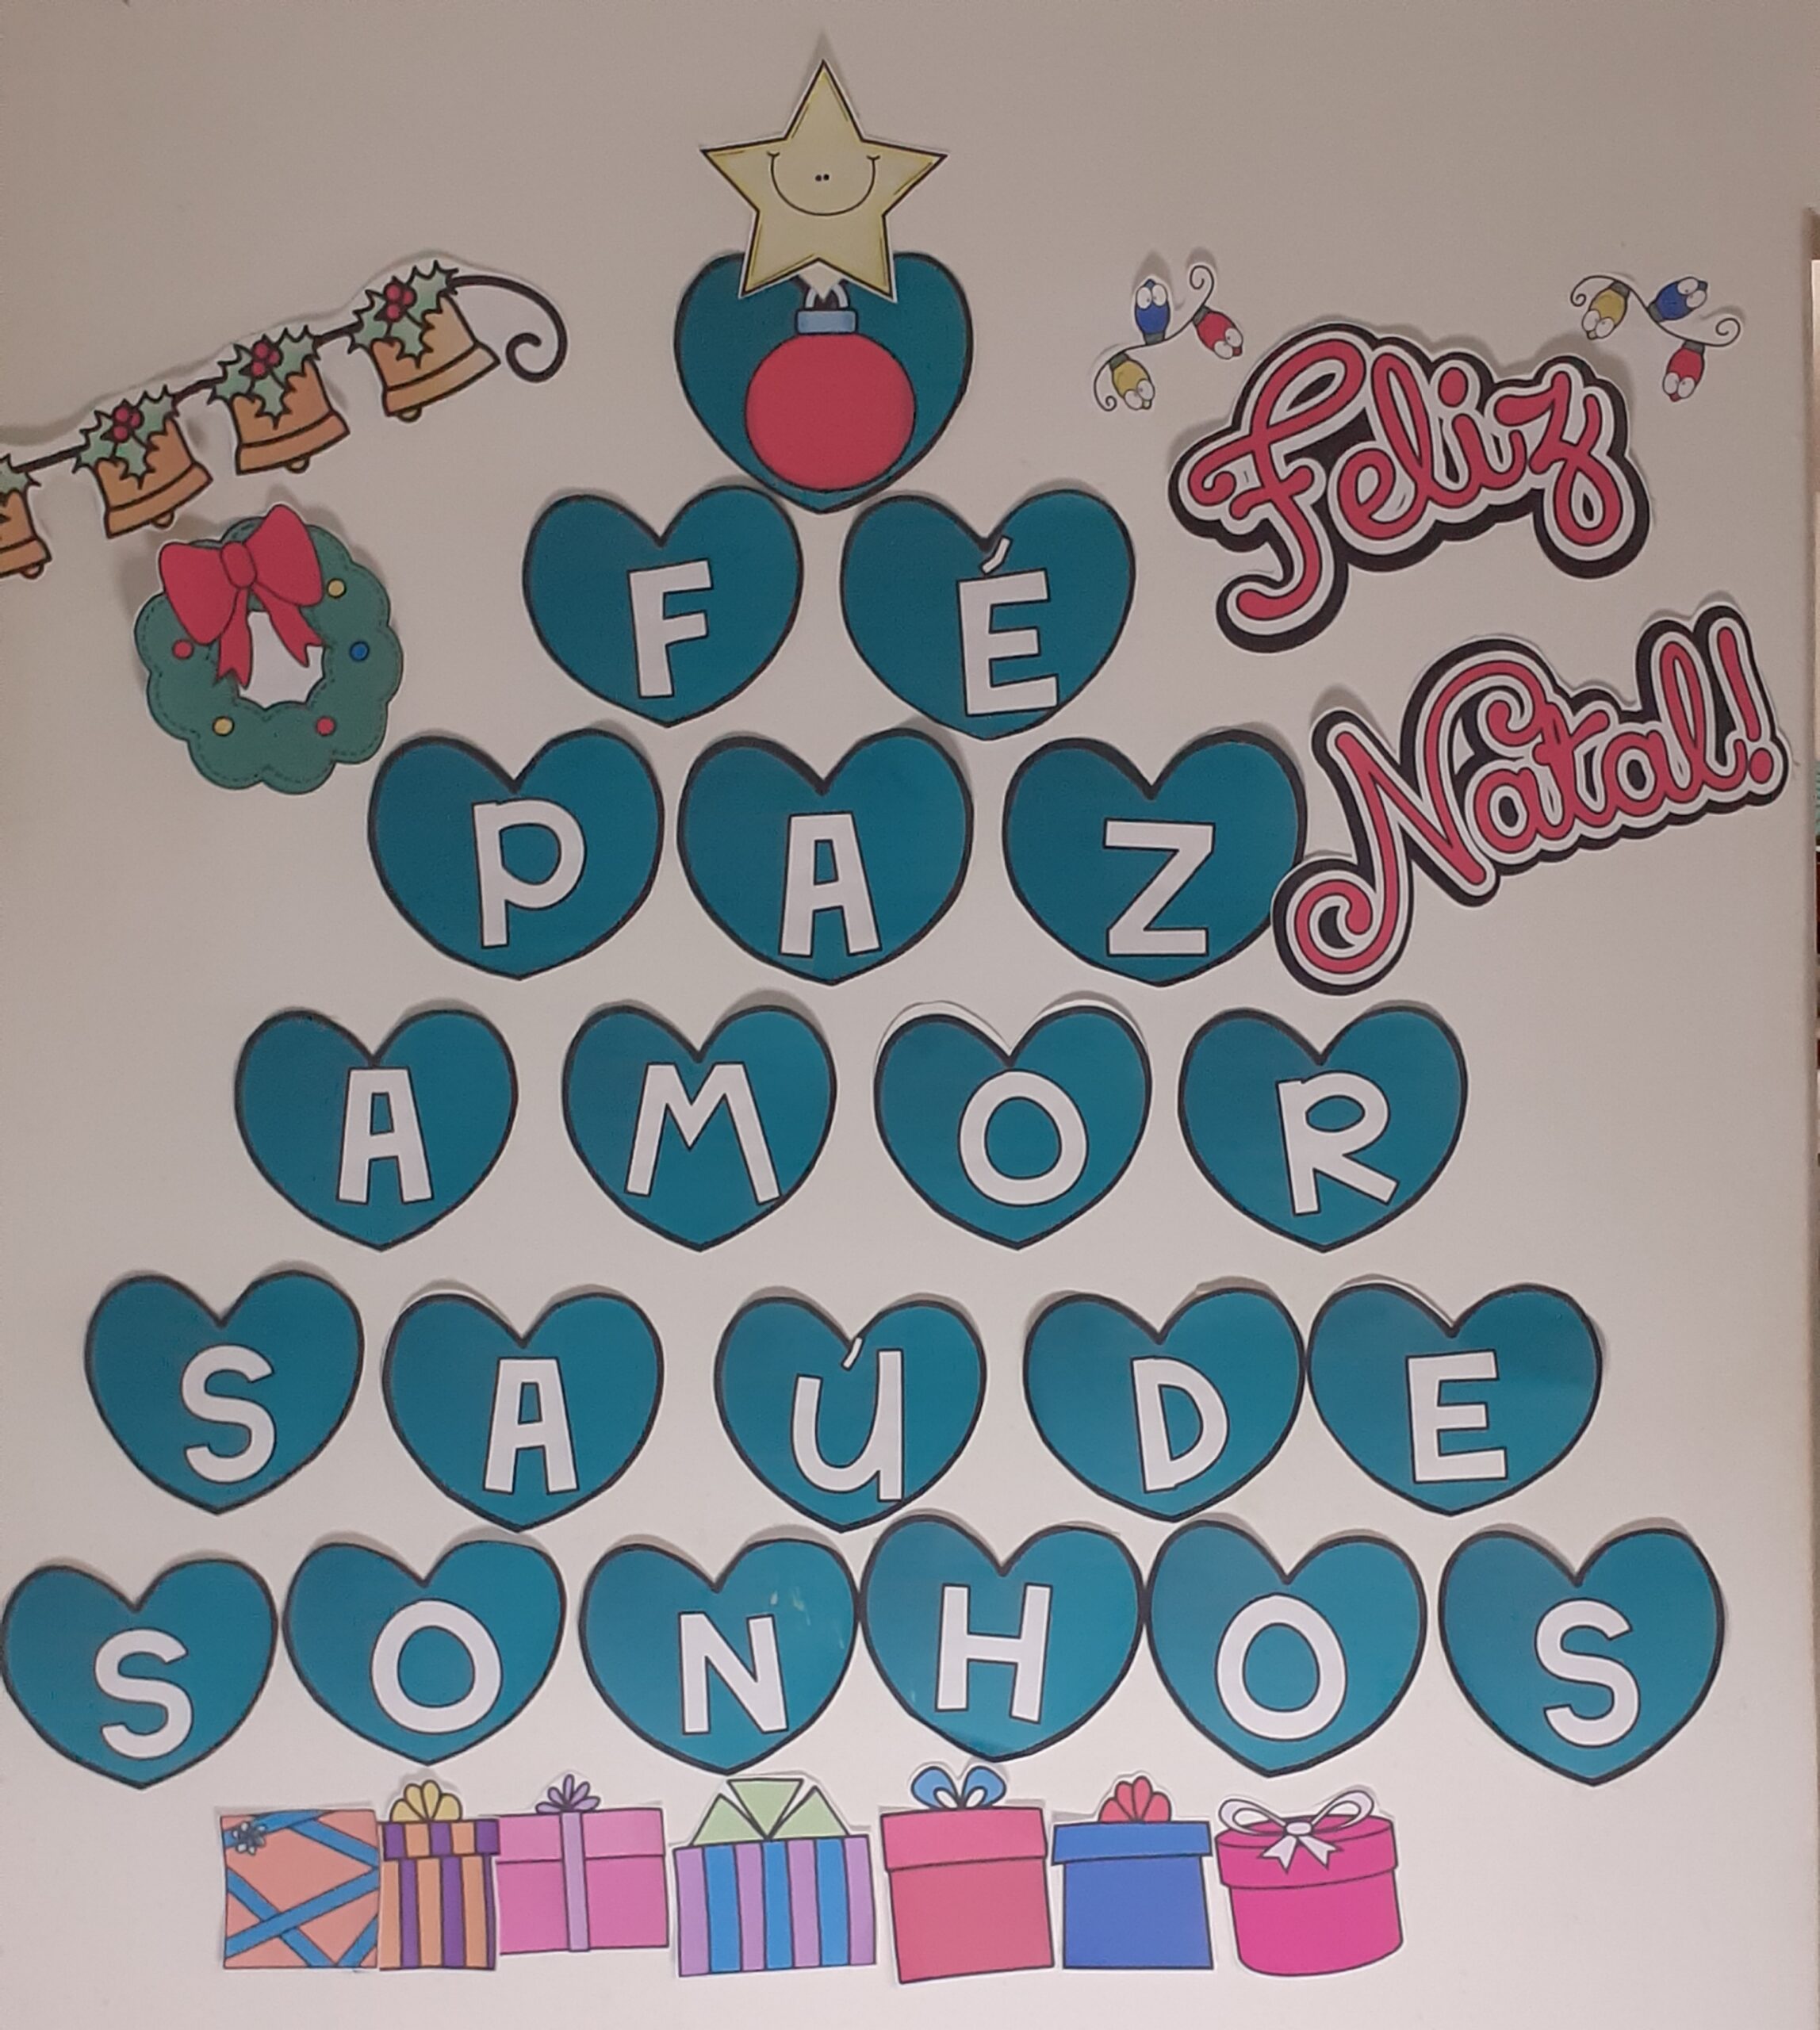 Feliz
Natal!
FÉ
PAZ
AMOR
SAÚDE
SONHOS